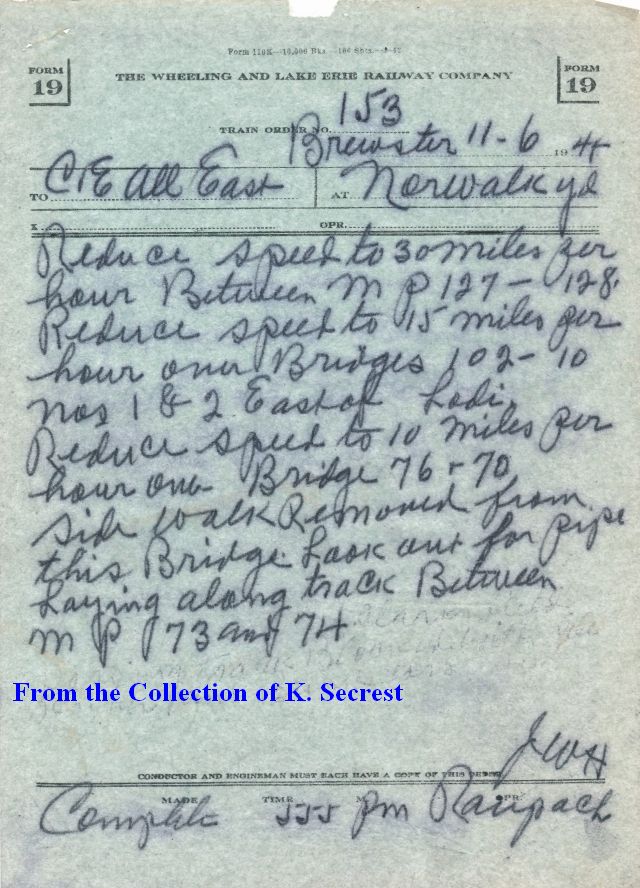 Form 110K—10,000 Bks.—100 Shts.—
FORM 19
THE WHEELING AND LAKE ERIE RAILWAY COMPANY
FORM 19
TRAIN ORDER NO. 153
Brewster 11-6 1944
TO C&E All East AT Norwalk yd
X OPR.
Reduce speed to 30 miles per
hour Between M P 127 - 128.
Reduce speed to 15 miles per
hour over Bridges 102 - 10
nos 1 & 2 East of Lodi.
Reduce speed to 10 miles per
hour over Bridge 76 - 70
side walk Removed from
this Bridge. Look out for pipe
Laying along track Between
M P 73 and 74
From the Collection of K. Secrest
JWH
CONDUCTOR AND ENGINEMAN MUST EACH HAVE A COPY OF THIS ORDER
MADE TIME M OPR.
Complete 555 pm Raupach